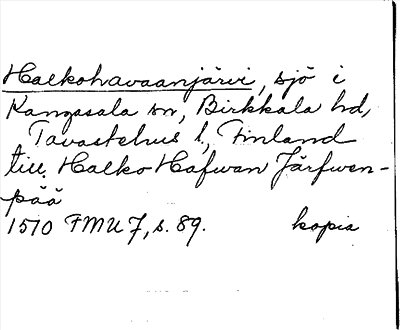 Halkohavaanjärvi, sjö i
Kangasala sn, Birkkala hd,
Tavastehus l, Finland
till Halko Hafwan Järfwen-
pää
1510 FMU 7, s. 89. kopia